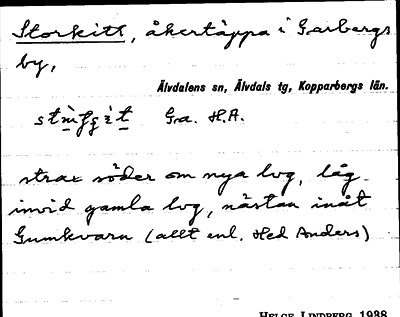 Storkitt, åkertäppa i Garbergs
by,
Älvdalens sn, Älvdals tg, Kopparbergs län.
Ga. H.A.
strax söder om nya lvg, låg
invid gamla lvg, nästan inåt
Gumkvarn (allt enl. Hed Anders)
HELGE LINDBERG 1938